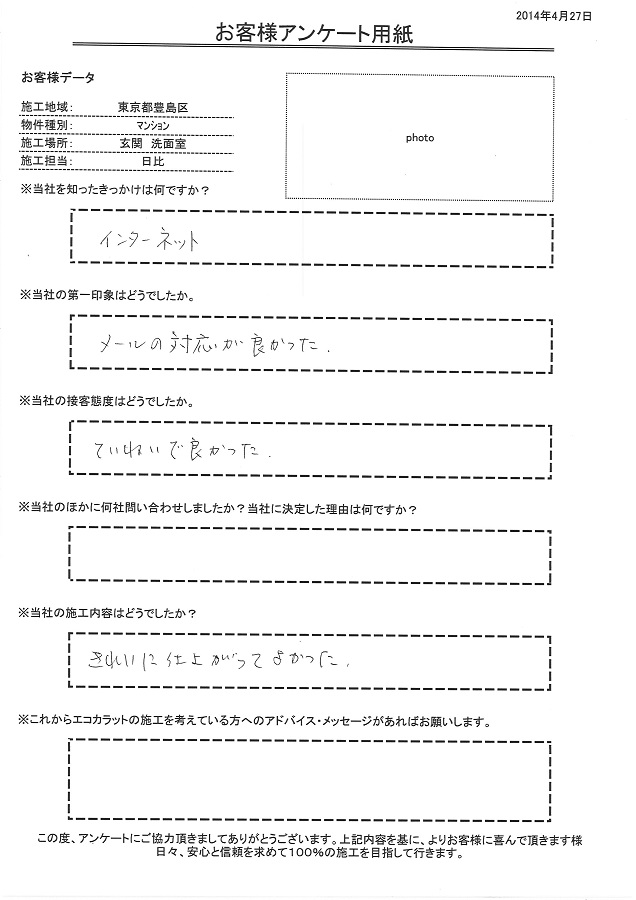 2014年4月27日
お客様アンケート用紙
お客様データ
施工地域： 東京都豊島区
物件種別： マンション
施工場所： 玄関 洗面室
施工担当： 日比
photo
※当社を知ったきっかけは何ですか？
インターネット
※当社の第一印象はどうでしたか。
メールの対応が良かった.
※当社の接客態度はどうでしたか。
ていねいで良かった.
※当社のほかに何社問い合わせしましたか？当社に決定した理由は何ですか？
※当社の施工内容はどうでしたか？
きれいに仕上がってよかった.
※これからエコカラットの施工を考えている方へのアドバイス・メッセージがあればお願いします。
この度、アンケートにご協力頂きましてありがとうございます。上記内容を基に、よりお客様に喜んで頂きます様
日々、安心と信頼を求めて100%の施工を目指して行きます。